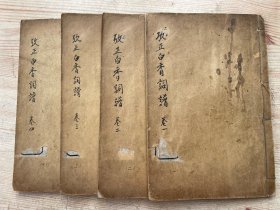 改正白香詞譜 卷一
改正白香詞譜 卷二
改正白香詞譜 卷三
改正白香詞譜 卷四